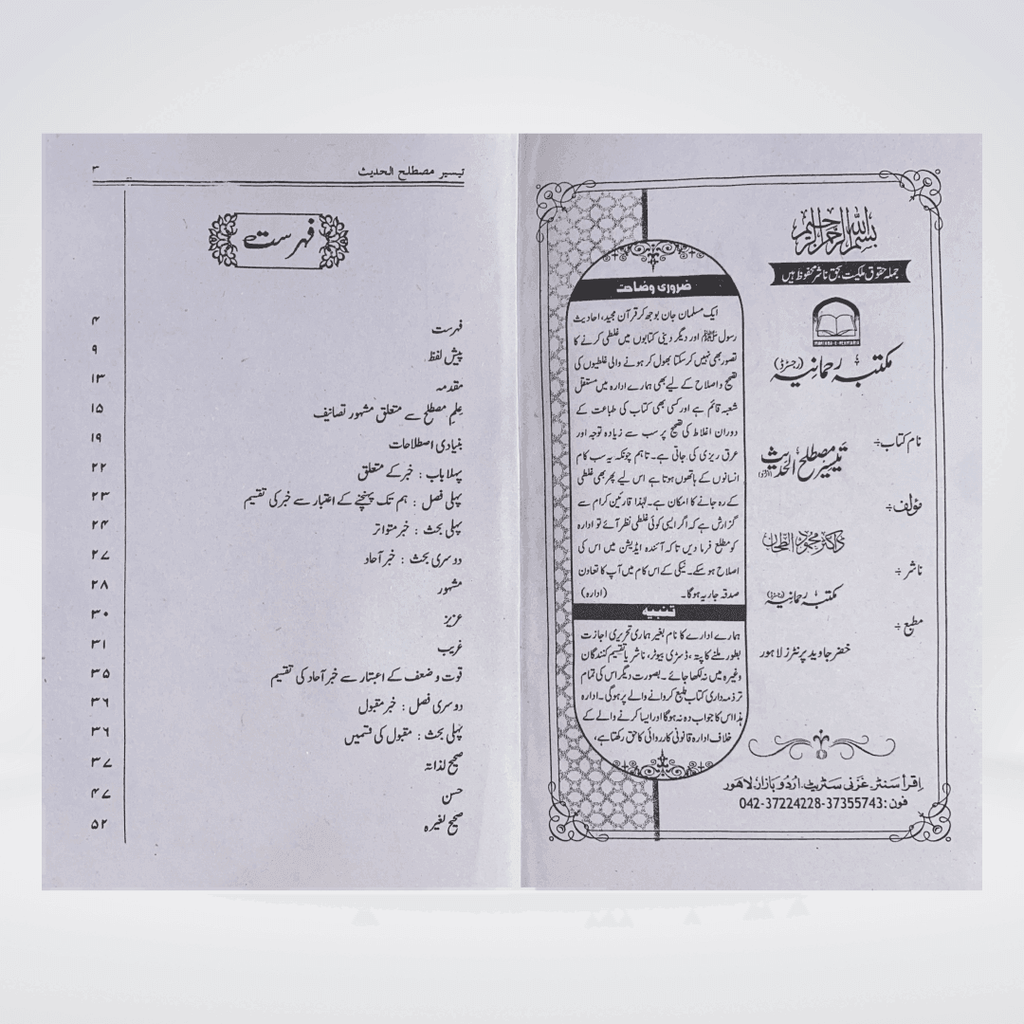 بسم الله الرحمن الرحيم
جملہ حقوق ملکیت بحق ناشر محفوظ ہیں
MAKTABA-E-REHMANIA
مکتبہ رحمانیہ (رجسٹرڈ)
نام کتاب ÷
تیسیر مصطلح الحدیث (اردو)
مؤلف ÷
ڈاکٹر محمود الطحان
ناشر ÷
مکتبہ رحمانیہ (رجسٹرڈ)
مطبع ÷
خضر جاوید پرنٹرز لاہور
اِقرأ سَنٹر غَزنی سَٹریٹ اُردُو بازار لاہور
فون: 042-37224228-37355743
ضروری وضاحت
ایک مسلمان جان بوجھ کر قرآن مجید، احادیث
رسول ﷺ اور دیگر دینی کتابوں میں غلطی کرنے کا
تصور بھی نہیں کر سکتا بھول کر ہونے والی غلطیوں کی
تصحیح و اصلاح کے لیے بھی ہمارے ادارہ میں مستقل
شعبہ قائم ہے اور کسی بھی کتاب کی طباعت کے
دوران اغلاط کی تصحیح پر سب سے زیادہ توجہ اور
عرق ریزی کی جاتی ہے۔ تاہم چونکہ یہ سب کام
انسانوں کے ہاتھوں ہوتا ہے اس لیے پھر بھی غلطی
کے رہ جانے کا امکان ہے۔ لہٰذا قارئین کرام سے
گزارش ہے کہ اگر ایسی کوئی غلطی نظر آئے تو ادارہ
کو مطلع فرما دیں تاکہ آئندہ ایڈیشن میں اس کی
اصلاح ہو سکے۔ نیکی کے اس کام میں آپ کا تعاون
صدقہ جاریہ ہوگا۔ (ادارہ)
تنبیہ
ہمارے ادارے کا نام بغیر ہماری تحریری اجازت
بطور ملنے کا پتہ، ڈسڑی بیوٹر، ناشر یا تقسیم کنندگان
وغیرہ میں نہ لکھا جائے۔ بصورت دیگر اس کی تمام
تر ذمہ داری کتاب طبع کروانے والے پر ہوگی۔ ادارہ
ہذا اس کا جواب دہ نہ ہوگا اور ایسا کرنے والے کے
خلاف ادارہ قانونی کارروائی کا حق رکھتا ہے،
تیسیر مصطلح الحدیث ۳
فہرست
فہرست ۴
پیش لفظ ۹
مقدمہ ۱۳
علم مصطلح سے متعلق مشہور تصانیف ۱۵
بنیادی اصطلاحات ۱۹
پہلا باب : خبر کے متعلق ۲۲
پہلی فصل : ہم تک پہنچنے کے اعتبار سے خبر کی تقسیم ۲۳
پہلی بحث : خبر متواتر ۲۴
دوسری بحث : خبر آحاد ۲۷
مشہور ۲۸
عزیز ۳۰
غریب ۳۱
قوت و ضعف کے اعتبار سے خبر آحاد کی تقسیم ۳۵
دوسری فصل : خبر مقبول ۳۶
پہلی بحث : مقبول کی قسمیں ۳۶
صحیح لذاتہ ۳۷
حسن ۴۷
صحیح لغیرہ ۵۲